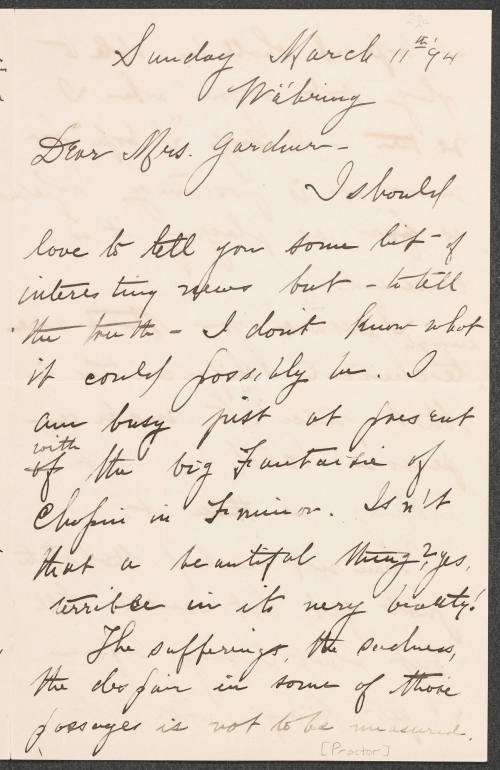 Sunday March 11th '94
Währing
Dear Mrs. Gardner -
I should
love to tell you some bit of
interesting news but - to tell
the truth - I don't know what
it could possibly be. I
am busy just at present
with
of the big Fantaisie of
Chopin in F minor. Isn't
that a beautiful thing?, yes,
terrible in its very beauty!
The sufferings, the sadness,
the despair in some of those
passages is not to be measured.
[Proctor]